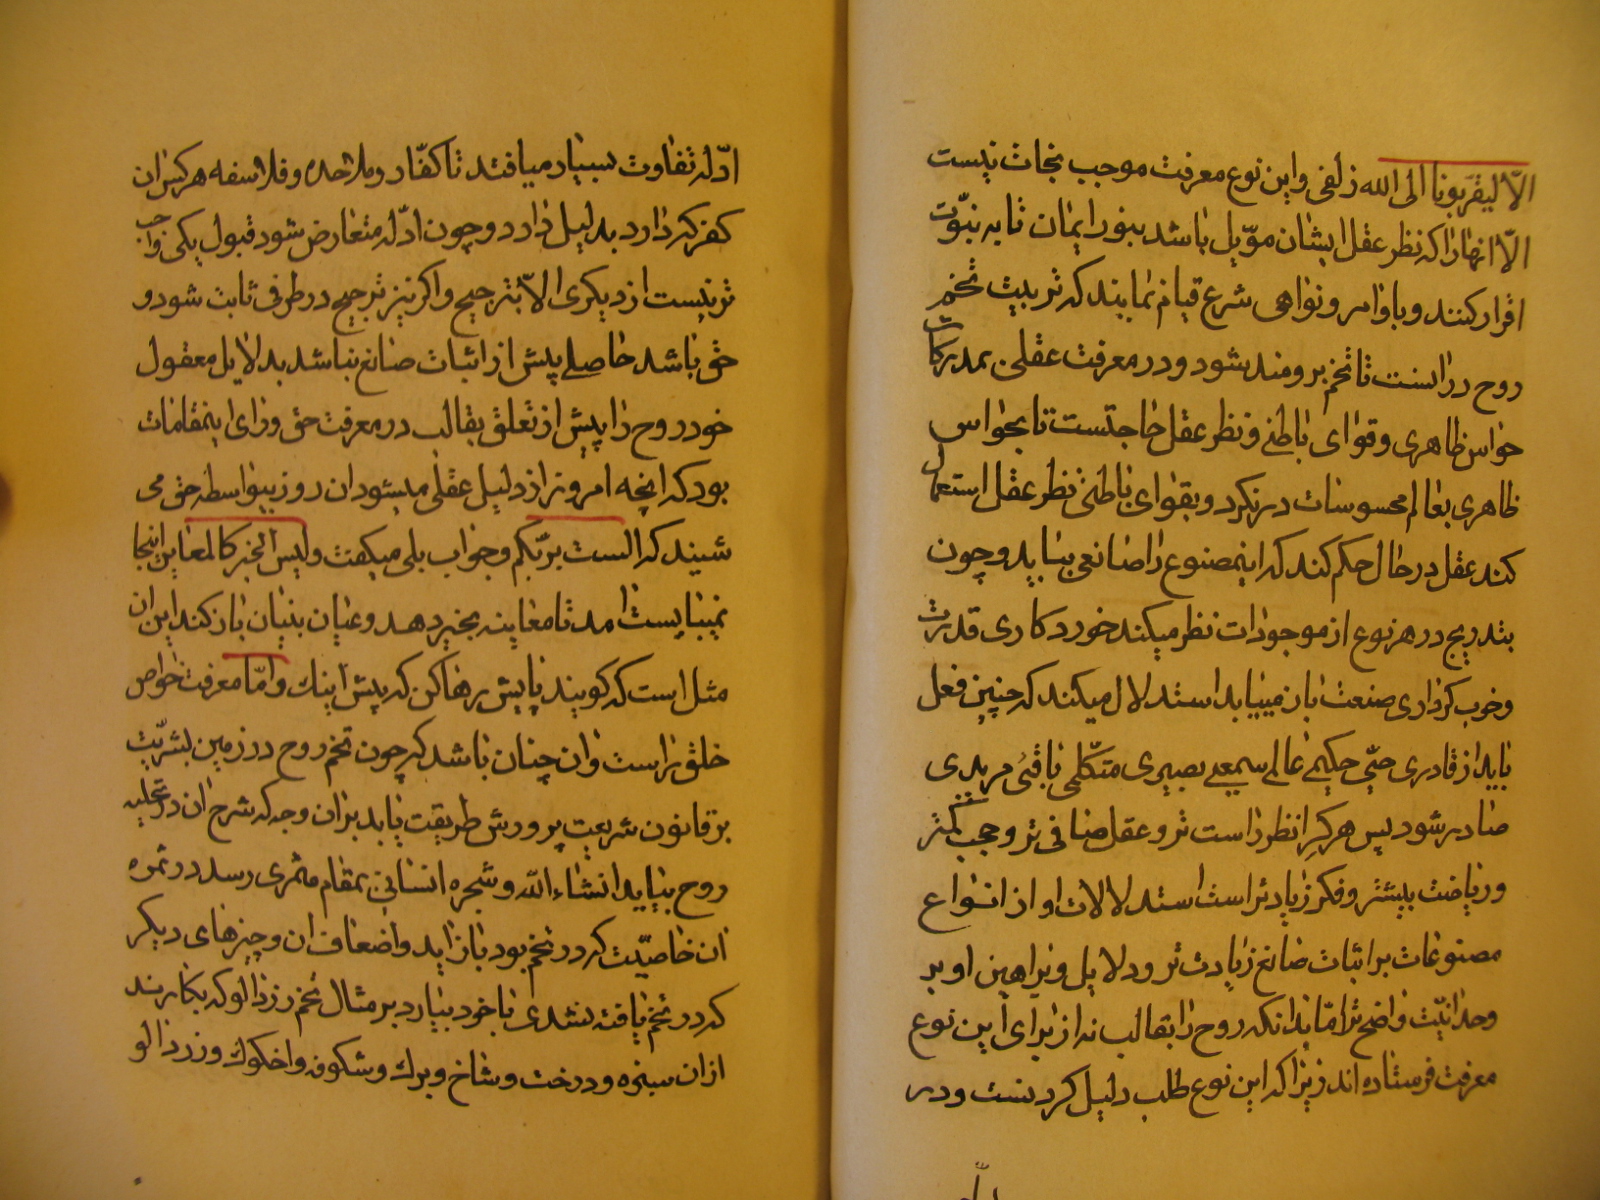 الّا لیقربونا الی الله زلفی و این نوع معرفت موجب نجات نیست
الّا انها را که نظر عقل ایشان مویّل باشد بنور ایمان تا به نبوّت
اقرار کنند و باوامر و نواهی شرع قیام نمایند که تربیت تخم
روح در انست تا تخم برومند شود و در معرفت عقلی بمدرکات
حواس ظاهری و قوای باطنی و نظر عقل حاجتست تا بحواس
ظاهری بعالم محسوسات درنگرد و بقوای باطنی نظر عقل استعمال
کند عقل در حال حکم کند که اینمصنوع را صانعی بباید و چون
بتدریج در هر نوع از موجودات نظر میکند خورد کاری قدرت
و خوب کرداری صنعت باز مییابد استدلال میکند که چنین فعل
باید از قادری حیّی حکیمی عالمی سمیعی بصیری متکلّمی باقیی مریدی
صادر شود پس هر کرا نظر راست تر و عقل صافی تر و حجب کمتر
و ریاضت بیشتر و فکر زیادتر است استدلالات او از انواع
مصنوعات بر اثبات صانع زیادت تر و دلایل و براهین او بر
وحدانیّت واضح تر امّا بدانکه روح را بقالب نه از برای این نوع
معرفت فرستاده اند زیرا که این نوع طلب دلیل کردنست و در
ادّله تفاوت بسیار میافتد تا کفّار و ملاحده و فلاسفه هر کس ان
کفر که دارد بدلیل دارد و چون ادّله متعارض شود قبول یکی واجب
تر نیست از دیکری الّا بترجیح و اکر نیز ترجیح در طرفی ثابت شود و
حق باشد حاصلی پیش از اثبات صانع نباشد بدلایل معقول
خود روح را پیش از تعلق بقالب در معرفت حق ورای اینمقامات
بود که انچه امروز از دلیل عقلی میشود ان روز بیواسطه حق می
شنید که الست بربّکم و جواب بلی میکفت و لیس الخبر کالمعاینه اینجا
نمیبایست امد تا معاینه بخبر دهد و عیان به بیان باز کند این ان
مثل است که کویند پایش رها کن که پیش اینک و امّا معرفت خواص
خلق راست و ان چنان باشد که چون تخم روح در زمین بشریّت
بر قانون شریعت پرورش طریقت یابد بران وجه که شرح ان در تحلیه
روح بیاید انشاء الله و شجره انسانی بمقام مثمری رسد در ثمره
ان خاصیّت که در تخم بود باز اید و اضعاف ان و چیزهای دیکر
که در تخم یافته نشدی با خود بیارد بر مثال تخم زردالو که بکارند
از ان سبزه و درخت و شاخ و برک و شکوفه و اخکوک و زردالو